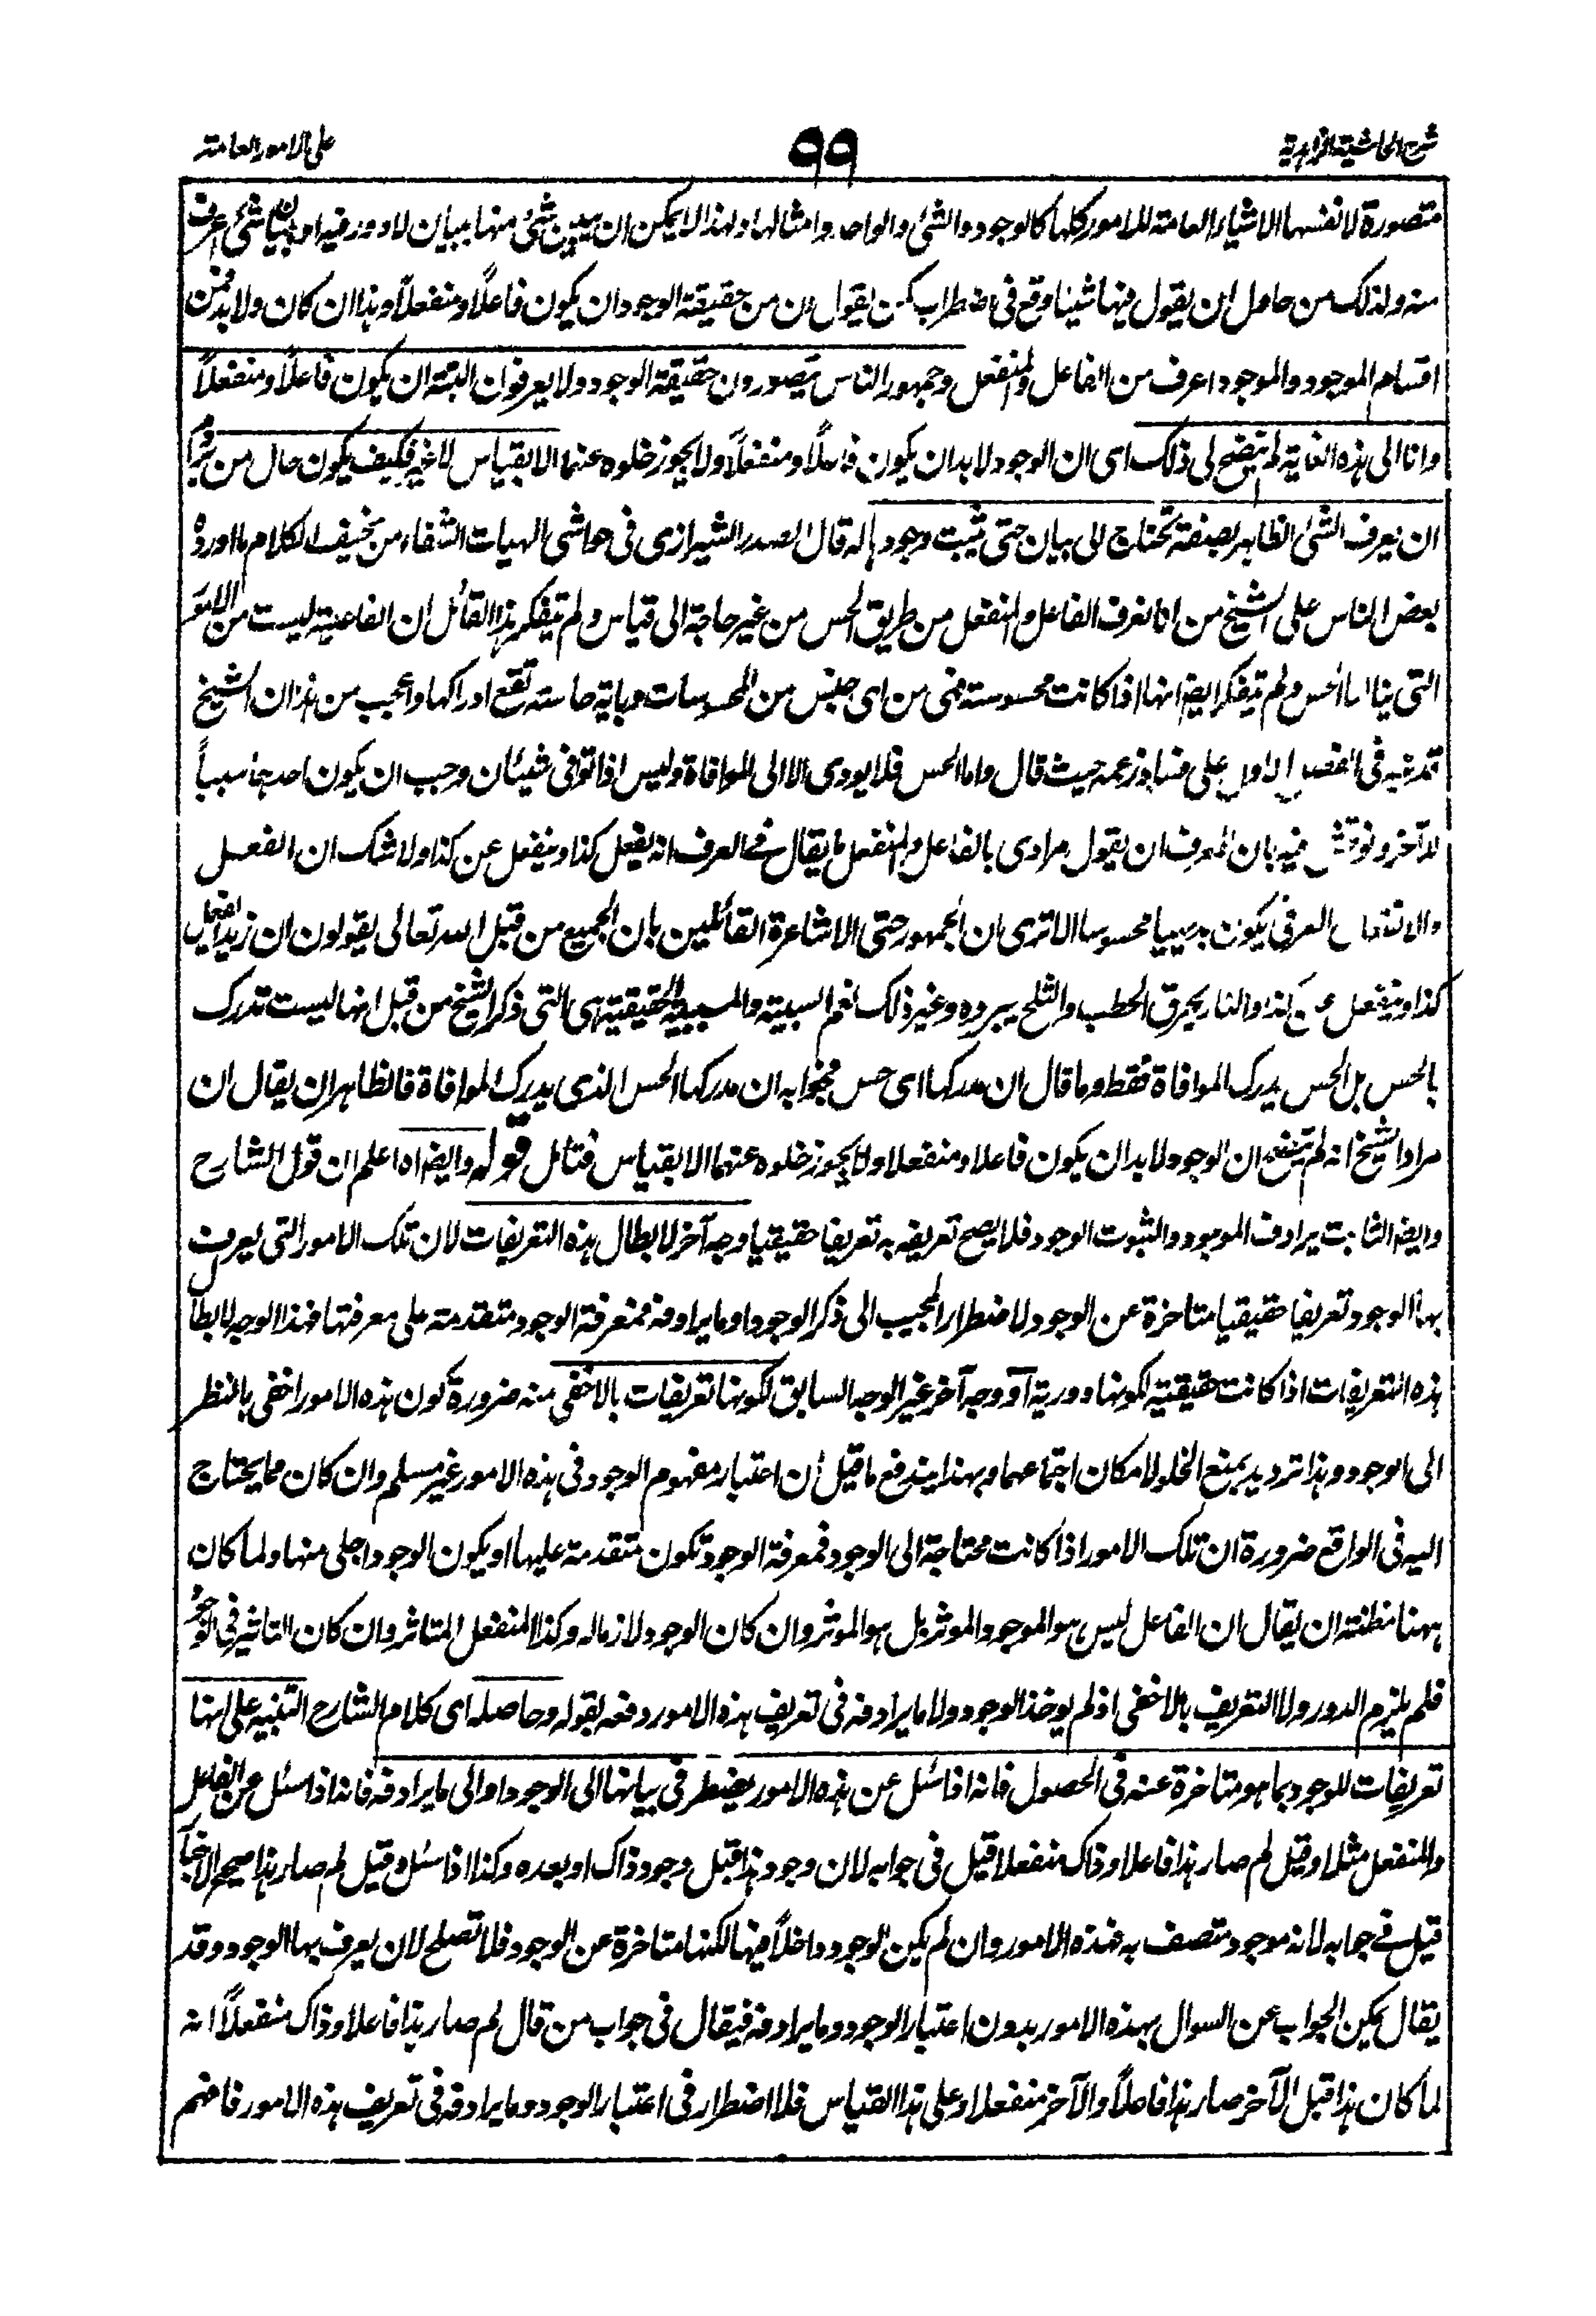 شرح الحاشية الزاهدية
٩٩
على الامور العامة
متصورة لانفسها الاشياء العامة للامور كلها كالوجود والشئ والواحد وامثالها ولهذا لا يمكن ان يبين شئ منها ببيان لا دور فيه او ببيان شئ اعرف
منه ولذلك من حاول ان يقول فيها شيئا وقع فى اضطراب كمن يقول ان من حقيقة الوجود ان يكون فاعلاً او منفعلاً وهذا ان كان ولا بد فمن
اقسام الموجود والموجود اعرف من الفاعل والمنفعل وجمهور الناس يتصورون حقيقة الوجود ولا يعرفون البتة ان يكون فاعلاً او منفعلاً
وانا الى هذه الغاية لم يتضح لى ذلك اى ان الوجود لا بد ان يكون فاعلاً او منفعلاً ولا يجوز خلوه عنهما الا بقياس لا غير فكيف يكون حال من يروم
ان يعرف الشئ الظاهر بصفة تحتاج الى بيان حتى يثبت وجودها له قال الصدر الشيرازى فى حواشى الهيات الشفاء من سخيف الكلام ما اورده
بعض الناس على الشيخ من انا نعرف الفاعل والمنفعل من طريق الحس من غير حاجة الى قياس ولم يتفكر هذا القائل ان الفاعلية ليست من الامور
التى ينالها الحس ولم يتفكر ايضا انها اذا كانت محسوسة فهى من اى جنس من المحسوسات وباية حاسة تقع ادراكها واعجب من هذا ان الشيخ
قد نبه فى الفصل الاول على فساد زعمه حيث قال واما الحس فلا يودى الا الى الموافاة وليس اذا توافى شيئان وجب ان يكون احدهما سبباً
للآخر ونوقش فيه بان للمعرف ان يقول مرادى بالفاعل والمنفعل ما يقال فى العرف انه يفعل كذا وينفعل عن كذا ولا شك ان الفعل
والانفعال العرفى يكون بديهيا محسوسا الا ترى ان الجمهور حتى الاشاعرة القائلين بان الجميع من قبل الله تعالى يقولون ان زيدا يفعل
كذا وينفعل عن كذا والنار يحرق الحطب والثلج يبرده وغير ذلك نعم السببية والمسببية الحقيقية هى التى ذكر الشيخ من قبل انها ليست تدرك
بالحس بل الحس يدرك الموافاة فقط وما قال ان مدركها اى حس فجوابه ان مدركها الحس الذى يدرك الموافاة فالظاهر ان يقال ان
مراد الشيخ انه لم يتضح ان الوجود لا بد ان يكون فاعلا او منفعلا ولا يجوز خلوه عنهما الا بقياس فتامل قوله وايضا اه اعلم ان قول الشارح
وايضا الثابت يرادف الموجود والثبوت الوجود فلا يصح تعريفه به تعريفا حقيقيا وجه آخر لابطال هذه التعريفات لان تلك الامور التى يعرف
بها الوجود تعريفا حقيقيا متاخرة عن الوجود لاضطرار المجيب الى ذكر الوجود او ما يرادفه فمعرفة الوجود متقدمة على معرفتها فهذا الوجه لابطال
هذه التعريفات اذا كانت حقيقية لكونها دورية او وجه آخر غير الوجه السابق لكونها تعريفات بالاخفى منه ضرورة كون هذه الامور اخفى بالنظر
الى الوجود وهذا ترديد بمنع الخلو لامكان اجتماعهما وبهذا يندفع ما قيل ان اعتبار مفهوم الوجود فى هذه الامور غير مسلم وان كان مما يحتاج
اليه فى الواقع ضرورة ان تلك الامور اذا كانت محتاجة الى الوجود فمعرفة الوجود تكون متقدمة عليها او يكون الوجود اجلى منها ولما كان
ههنا مظنة ان يقال ان الفاعل ليس هو الموجود الموثر بل هو الموثر وان كان الوجود لازما له وكذا المنفعل المتاثر وان كان التاثير فى الوجود
فلم يلزم الدور ولا التعريف بالاخفى اذ لم يوخذ الوجود ولا ما يرادفه فى تعريف هذه الامور دفعه بقوله وحاصله اى كلام الشارح التنبيه على انها
تعريفات للوجود بما هو متاخرة عنه فى الحصول فانه اذا سئل عن هذه الامور يضطر فى بيانها الى الوجود او الى ما يرادفه فانه اذا سئل عن الفاعل
والمنفعل مثلا وقيل لم صار هذا فاعلا وذاك منفعلا قيل فى جوابه لان وجود هذا قبل وجود ذاك او بعده وكذا اذا سئل وقيل لم صار هذا صحيح الاخبار
قيل فى جوابه لانه موجود متصف به فهذه الامور وان لم يكن الوجود داخلاً فيها لكنها متاخرة عن الوجود فلا تصلح لان يعرف بها الوجود وقد
يقال يمكن الجواب عن السوال بهذه الامور بدون اعتبار الوجود وما يرادفه فيقال فى جواب من قال لم صار هذا فاعلا وذاك منفعلاً انه
لما كان هذا قبل الآخر صار هذا فاعلاً والآخر منفعلا وعلى هذا القياس فلا اضطرار فى اعتبار الوجود وما يرادفه فى تعريف هذه الامور فافهم